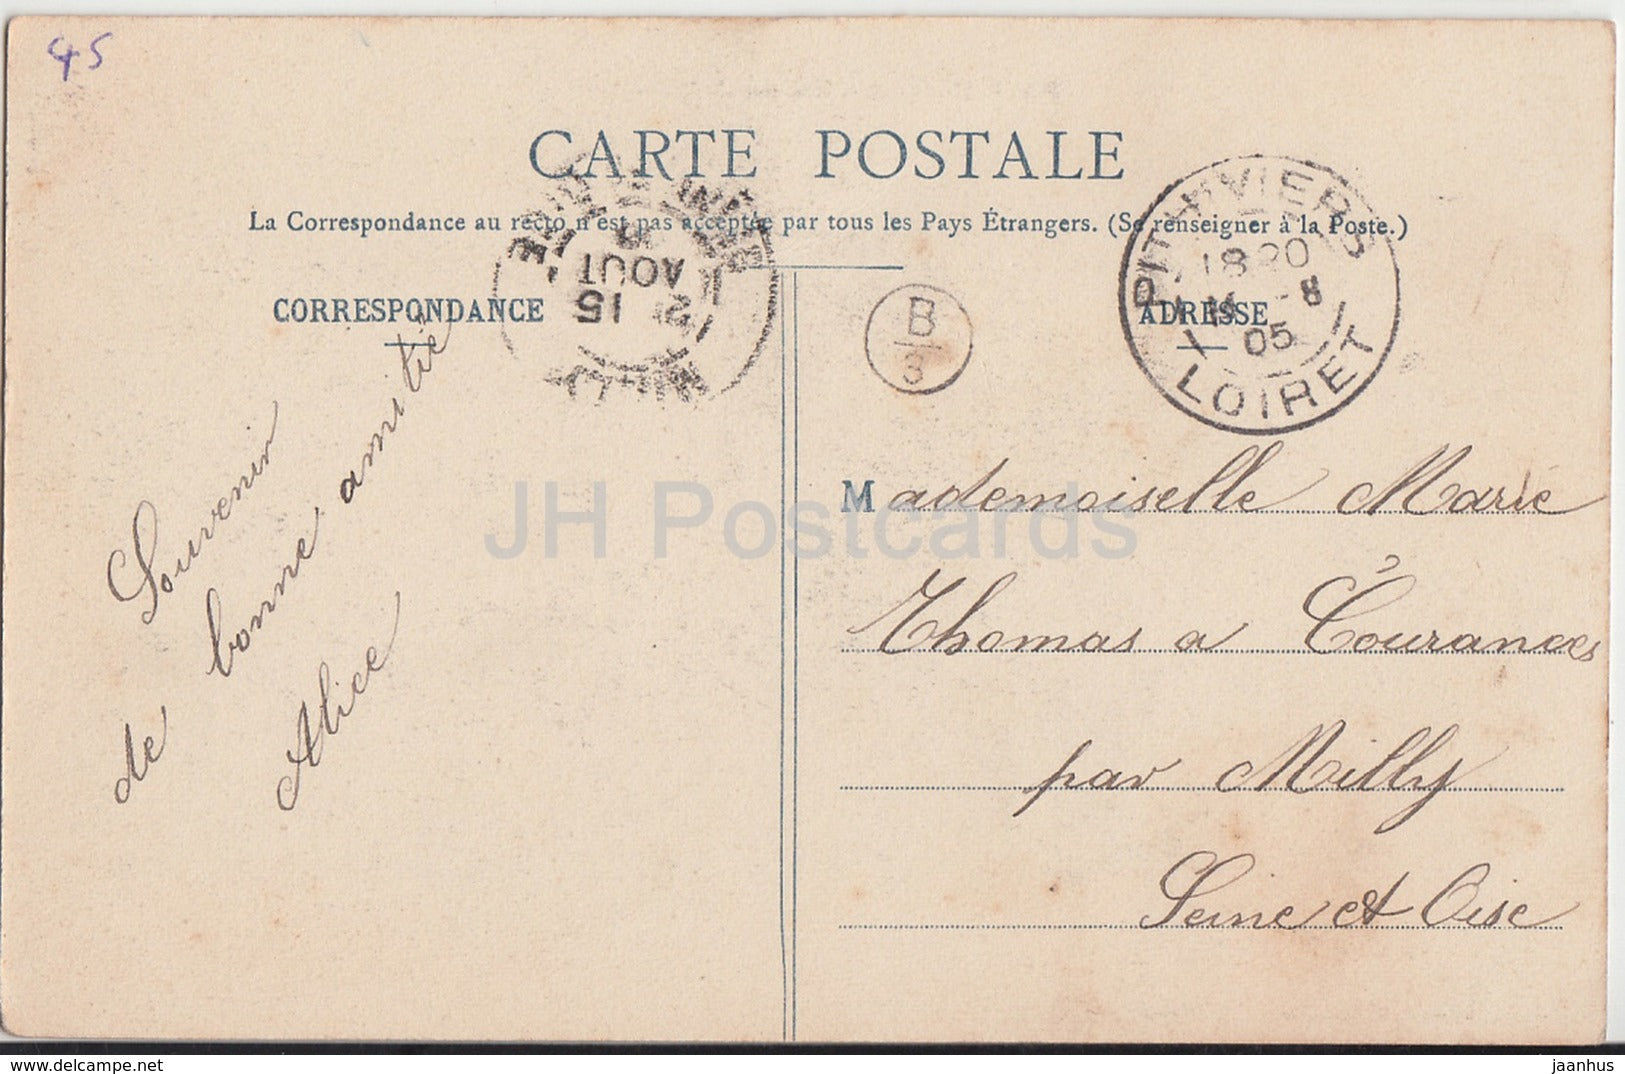 45
CARTE POSTALE
La Correspondance au recto n'est pas acceptée par tous les Pays Étrangers. (Se renseigner à la Poste.)
CORRESPONDANCE
ADRESSE
15
AOUT
B
3
PITHIVIERS
18 20
-8
05
LOIRET
Souvenir
de bonne amitié
Alice
Mademoiselle Marie
Thomas a Courances
par Milly
Seine et Oise
JH Postcards
www.delcampe.net
jaanhus